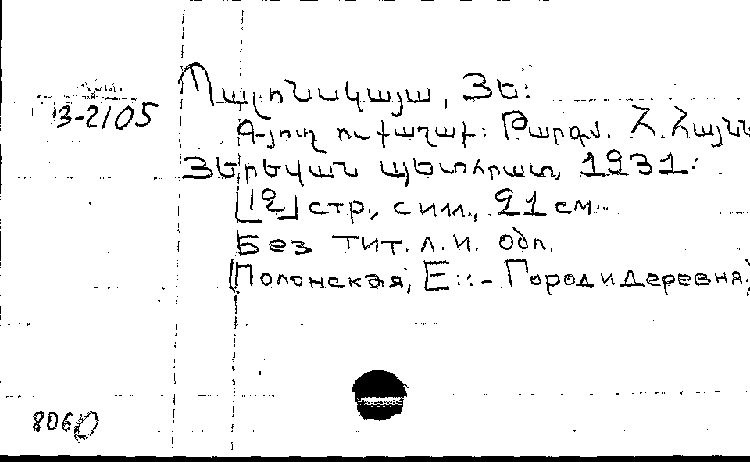 Պալոնսկայա, ՅԵ:
3-2105
Գյուղ ու քաղաք: Թարգմ. Հ. Հայն
Յերեվան պետհրատ, 1931:
[12] стр, с илл., 21 см.
Без тит. л. и. обл.
[Полонская, Е::- Город и деревня]
8060